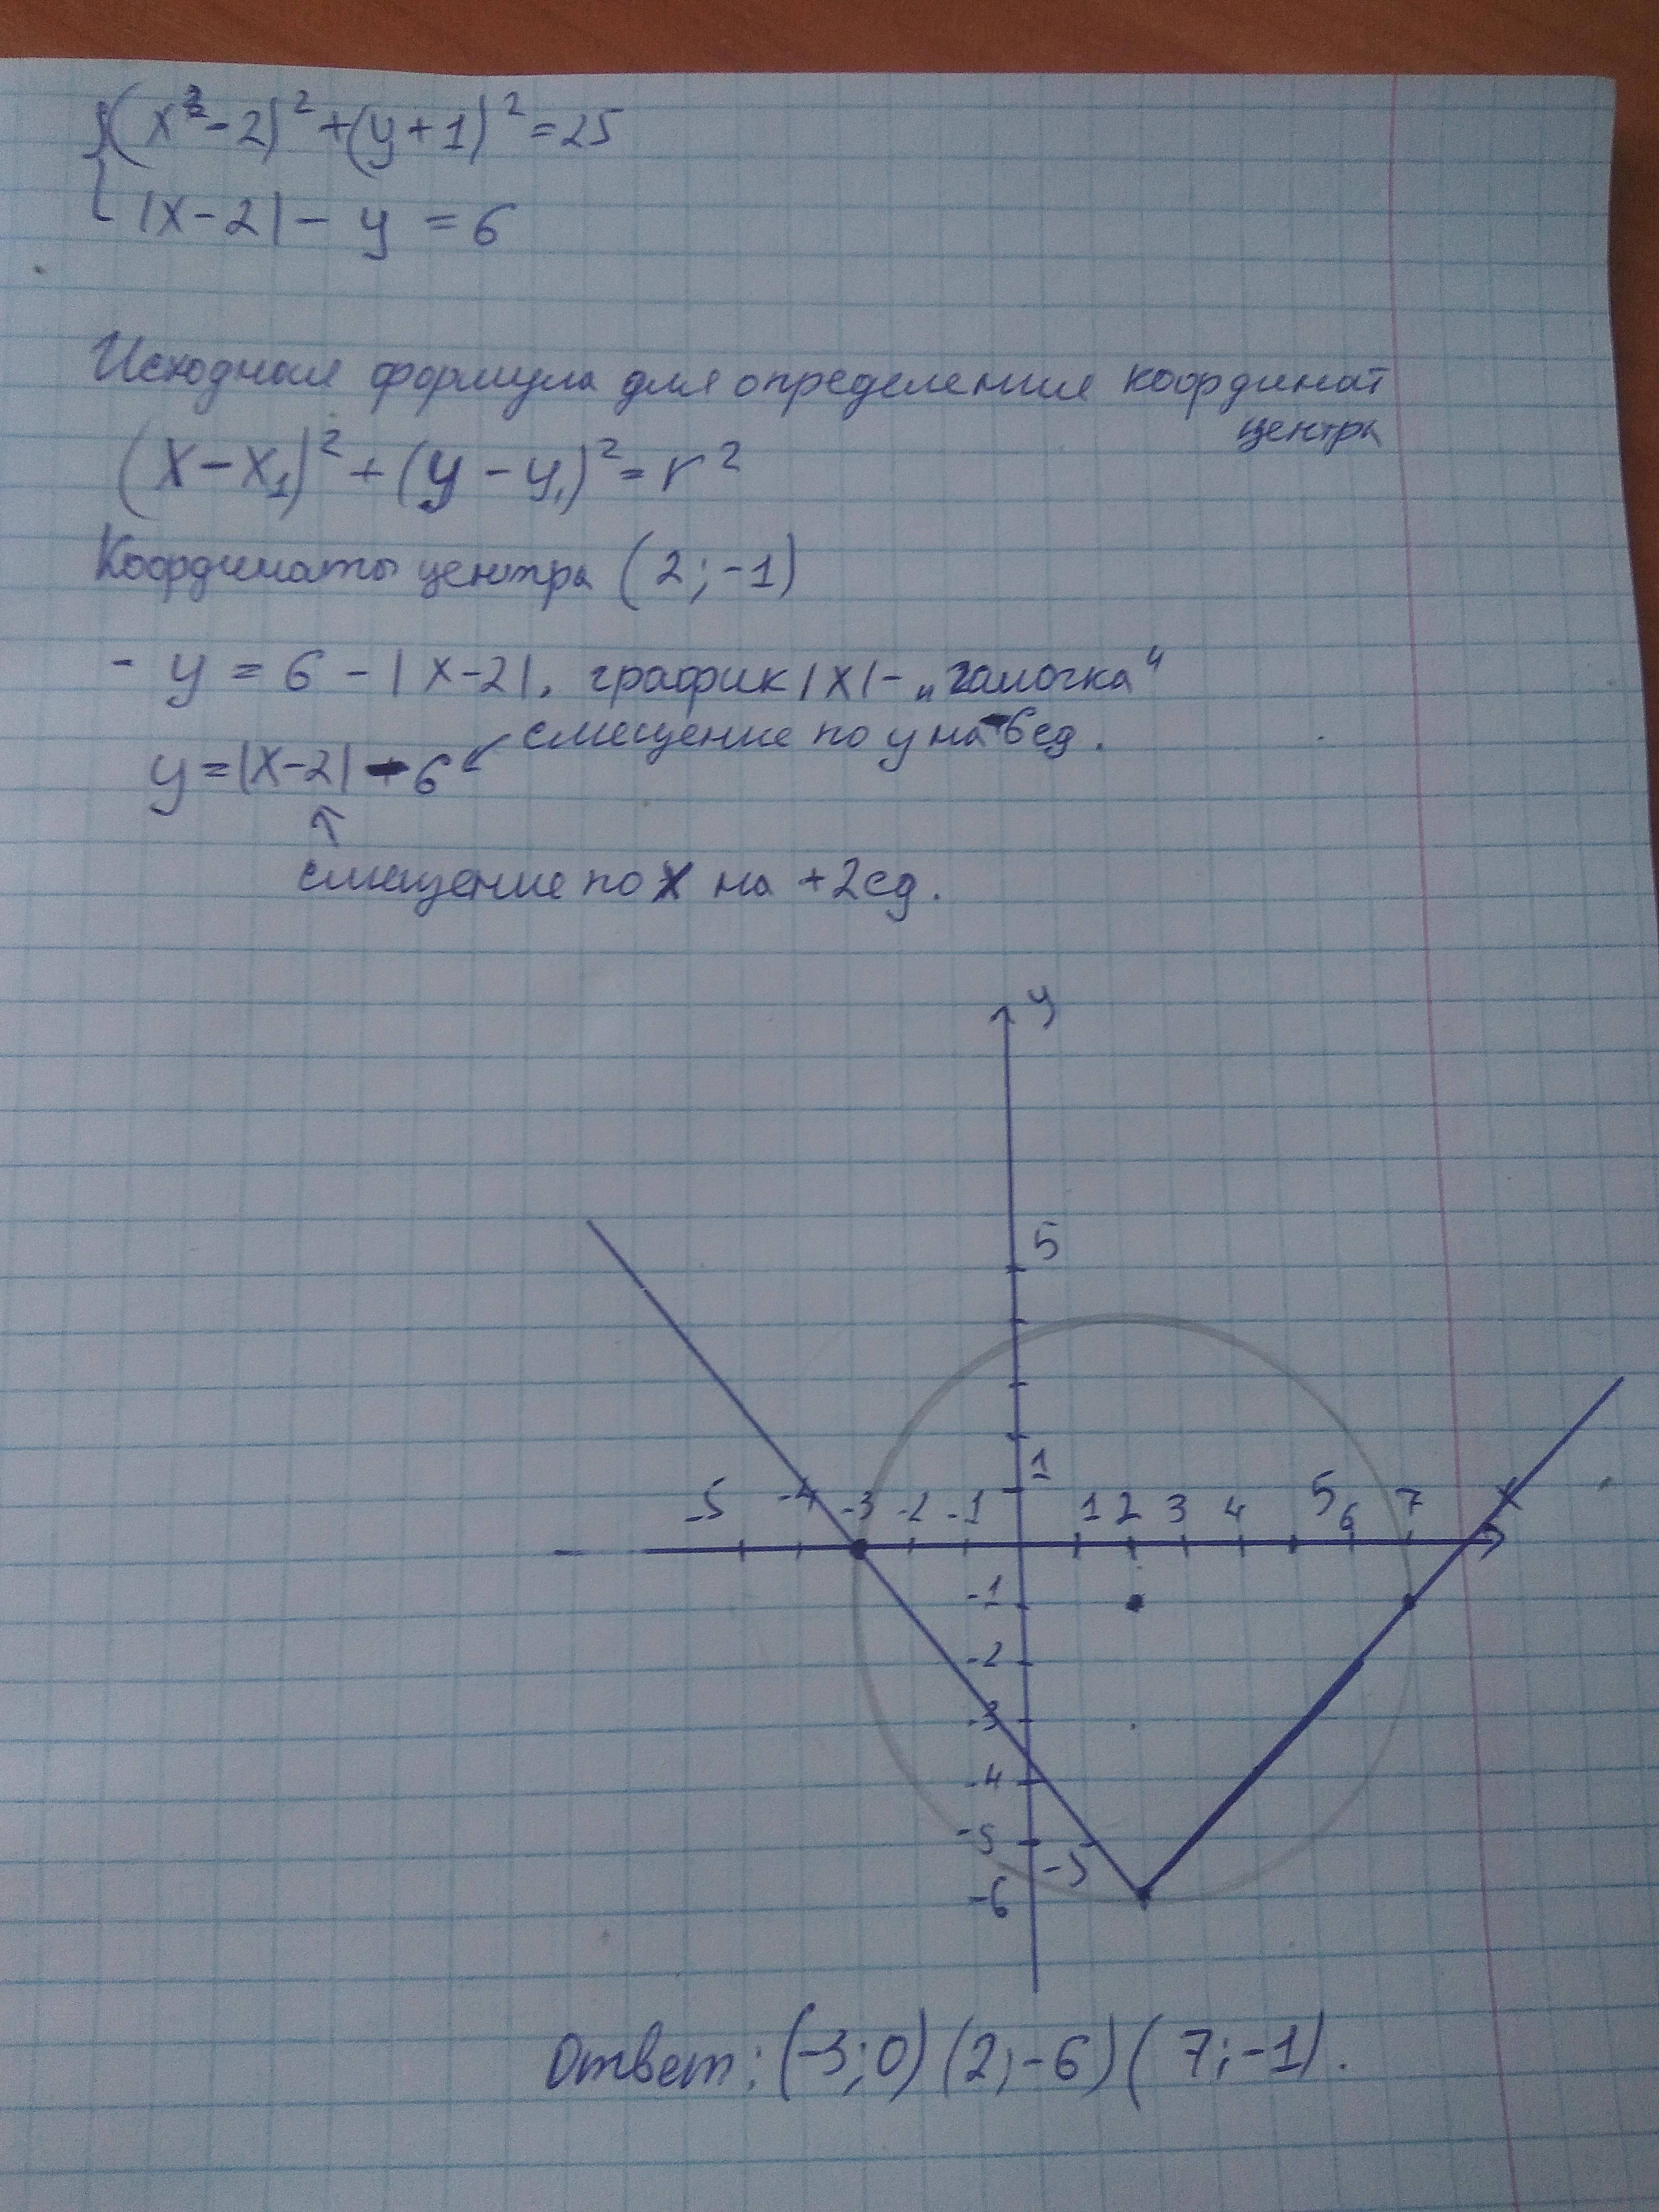 (x²-2)²+(y+1)²=25
|x-2|-y=6
Исходная формула для определения координат
центра
(x-x₁)²+(y-y₁)²=r²
Координаты центра (2;-1)
-y=6-|x-2|, график |x|-„галочка“
смещение по y на -6ед.
y=|x-2|-6
смещение по x на +2ед.
y
5
1
-5 -4 -3 -2 -1 1 2 3 4 5 6 7 x
-1
-2
-3
-4
-5
-6
Ответ: (-3;0) (2;-6) (7;-1).